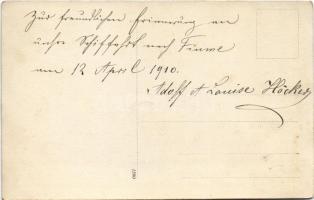 Zur freundlichen Erinnerung an
unsre Schiffahrt nach Fiume
am 12 April 1910.
Adolf & Louise Höcker